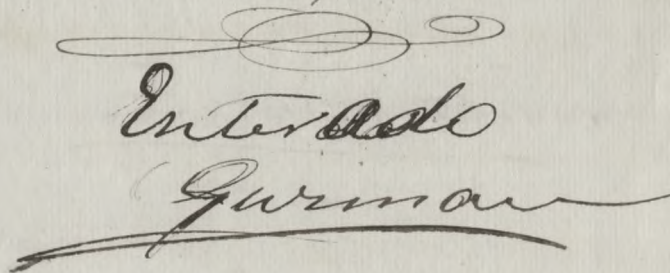 Enterado
Guzman